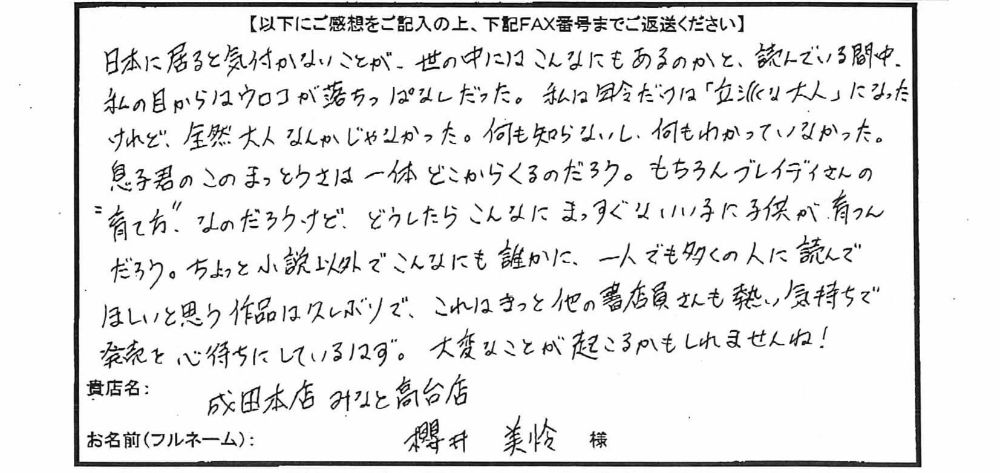 【以下にご感想をご記入の上、下記FAX番号までご返送ください】
日本に居ると気付かないことが、世の中にはこんなにもあるのかと、読んでいる間中、
私の目からはウロコが落ちっぱなしだった。私は年令だけは「立派な大人」になった
けれど、全然大人なんかじゃなかった。何も知らないし、何もわかっていなかった。
息子君のこのまっとうさは一体どこからくるのだろう。もちろんブレイディさんの
"育て方"、なのだろうけど、どうしたらこんなにまっすぐないい子に子供が育つん
だろう。ちょっと小説以外でこんなにも誰かに、一人でも多くの人に読んで
ほしいと思う作品は久しぶりで、これはきっと他の書店員さんも熱い気持ちで
発売を心待ちにしているはず。大変なことが起こるかもしれませんね!
貴店名： 成田本店 みなと高台店
お名前(フルネーム)： 櫻井 美怜 様